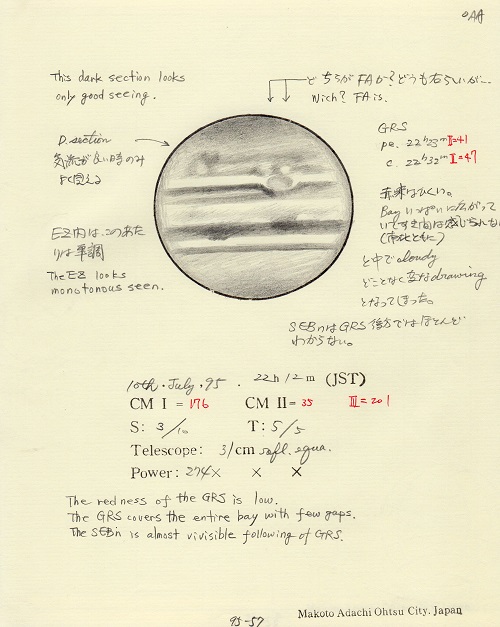 OAA
This dark section looks
only good seeing.
どちらがFAか?どうも右らしいが...
Wich? FA is.
D. section
気流が良い時のみ
よく見える
GRS
pe. 22h23m II=41
c. 22h32m II=47
赤味はひくい。
Bay いっぱいに広がって
(南北ともに)
EZ内は、このあた
りは単調
The EZ looks
monotonous seen.
と中でcloudy
どことなく変なdrawing
となってしまった。
SEBnはGRS後方ではほとんど
わからない。
10th. July, 95. 22h 12m (JST)
CM I = 176 CM II = 35 III = 201
S: 3/10 T: 5/5
Telescope: 31cm refl. equa.
Power: 274× × ×
The redness of the GRS is low.
The GRS covers the entire bay with few gaps.
The SEBn is almost vivisible following of GRS.
Makoto Adachi Ohtsu City. Japan
95-57